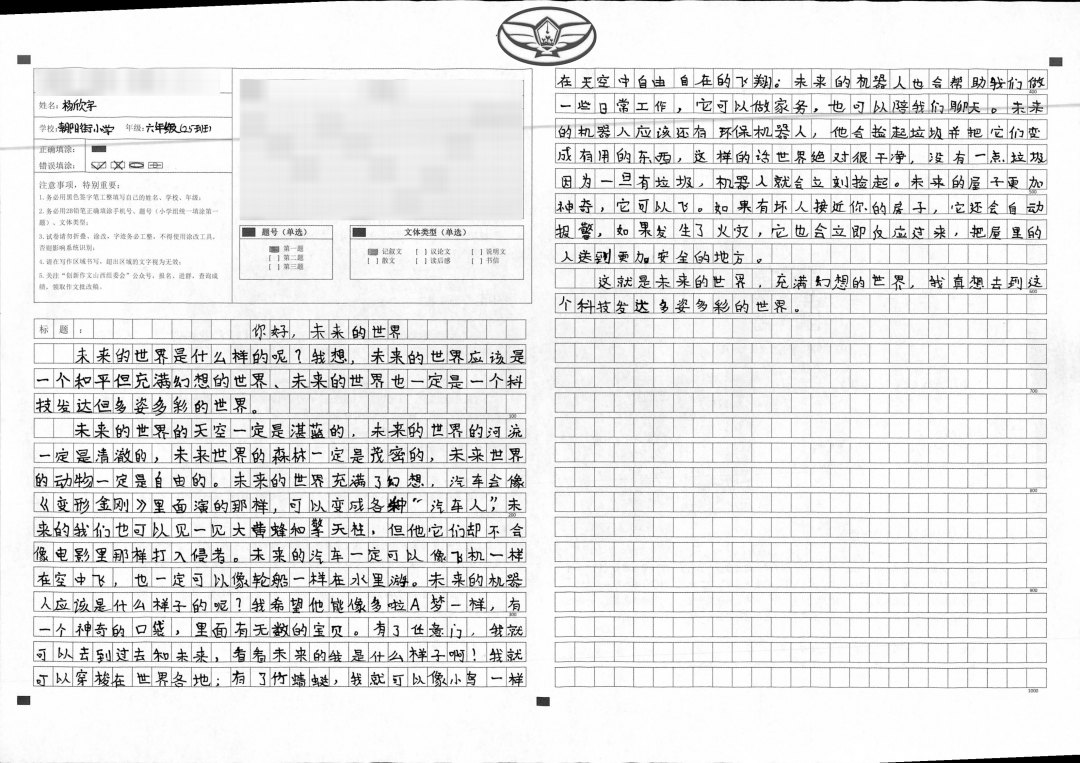 姓名：杨欣宇
学校：朝阳街小学 年级：六年级(257班)
正确填涂：
错误填涂：
注意事项，特别重要：
1.务必用黑色签字笔工整填写自己的姓名、学校、年级；
2.务必用2B铅笔正确填涂手机号、题号（小学组统一填涂第一
题）、文体类型；
3.试卷请勿折叠、涂改，字迹务必工整，不得使用涂改工具，
否则影响系统识别；
4.请在写作区域书写，超出区域的文字视为无效；
5.关注“创新作文山西组委会”公众号，报名、进群、查询成
绩、领取作文批改稿。
题号（单选）
第一题
[ ] 第二题
[ ] 第三题
文体类型（单选）
记叙文 [ ] 议论文 [ ] 说明文
[ ] 散文 [ ] 读后感 [ ] 书信
标题： 你好，未来的世界
未来的世界是什么样的呢？我想，未来的世界应该是
一个和平但充满幻想的世界、未来的世界也一定是一个科
技发达但多姿多彩的世界。
100
未来的世界的天空一定是湛蓝的，未来的世界的河流
一定是清澈的，未来世界的森林一定是茂密的，未来世界
的动物一定是自由的。未来的世界充满了幻想，汽车会像
《变形金刚》里面演的那样，可以变成各种“汽车人”，未
200
来的我们也可以见一见大黄蜂和擎天柱，但他它们却不会
像电影里那样打入侵者。未来的汽车一定可以像飞机一样
在空中飞，也一定可以像轮船一样在水里游。未来的机器
人应该是什么样子的呢？我希望他能像多啦A梦一样，有
300
一个神奇的口袋，里面有无数的宝贝。有了任意门，我就
可以去到过去和未来，看看未来的我是什么样子啊！我就
可以穿梭在世界各地；有了竹蜻蜓，我就可以像小鸟一样
在天空中自由自在的飞翔；未来的机器人也会帮助我们做
400
一些日常工作，它可以做家务，也可以陪我们聊天。未来
的机器人应该还有环保机器人，他会捡起垃圾并把它们变
成有用的东西，这样的话世界绝对很干净，没有一点垃圾
因为一旦有垃圾，机器人就会立刻捡起。未来的屋子更加
500
神奇，它可以飞。如果有坏人接近你的房子，它还会自动
报警，如果发生了火灾，它也会立即反应过来，把屋里的
人送到更加安全的地方。
这就是未来的世界，充满幻想的世界，我真想去到这
600
个科技发达多姿多彩的世界。
700
800
900
1000